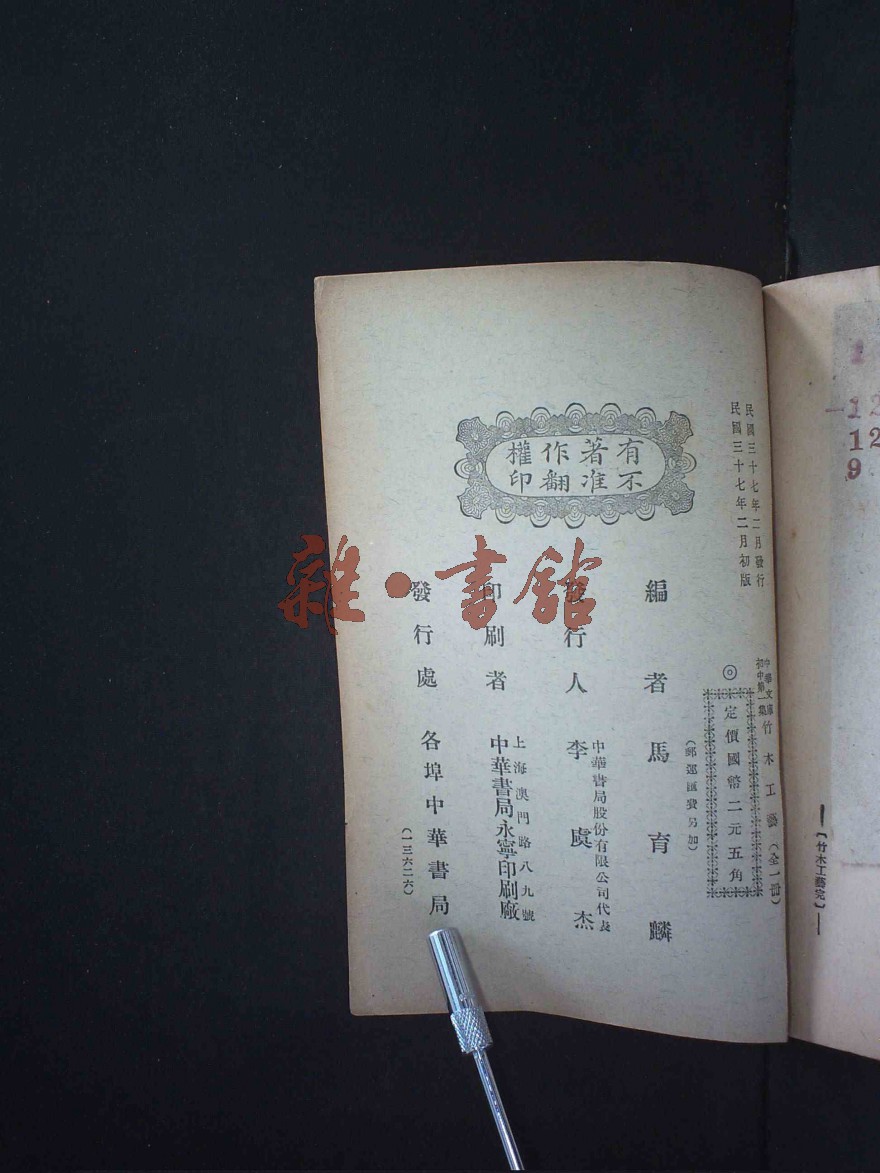 民國三十七年二月發行
民國三十七年二月初版
中華文庫
初中第一集
竹木工藝(全一冊)
◎定價國幣二元五角
(郵運匯費另加)
有著作權
不准翻印
編者 馬育麟
發行人 李虞杰
中華書局股份有限公司代表
印刷者
上海澳門路八九號
中華書局永寧印刷廠
發行處 各埠中華書局
(一三六二六)
【竹木工藝完】
1
12
12
9
雜·書館